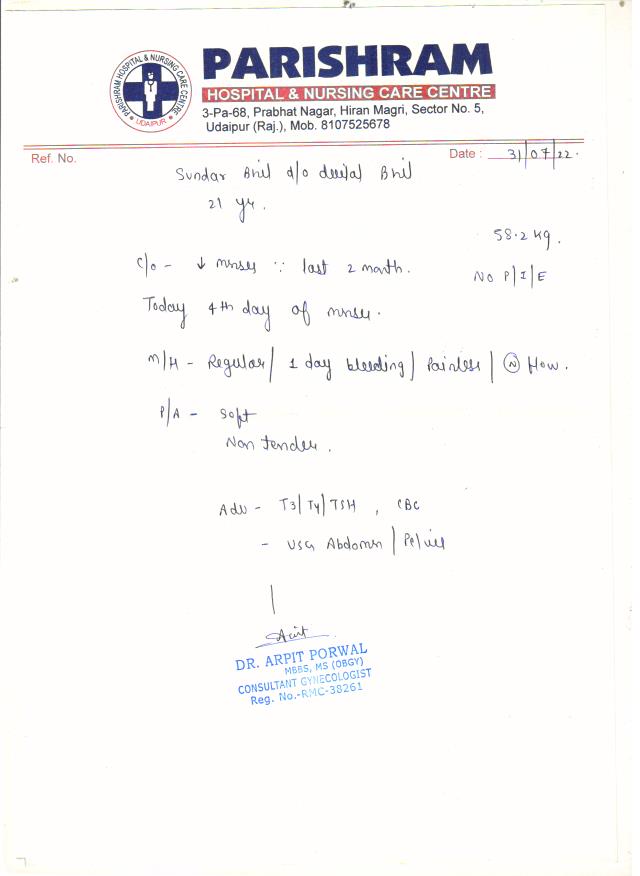 PARISHRAM HOSPITAL & NURSING CARE CENTRE
UDAIPUR
PARISHRAM
HOSPITAL & NURSING CARE CENTRE
3-Pa-68, Prabhat Nagar, Hiran Magri, Sector No. 5,
Udaipur (Raj.), Mob. 8107525678
Ref. No.
Date : 31/07/22.
Sundar Bhil d/o Bhil
21 yr.
58.2 kg.
C/o - ↓ menses ∵ last 2 month.
NO P/I/E
Today 4th day of menses.
M/H - Regular / 1 day bleeding / Painless / Ⓝ flow.
P/A - Soft
Non tender.
Adv - T3/T4/TSH , CBC
- USG Abdomen / Pelvis
DR. ARPIT PORWAL
MBBS, MS (OBGY)
CONSULTANT GYNECOLOGIST
Reg. No.-RMC-38261